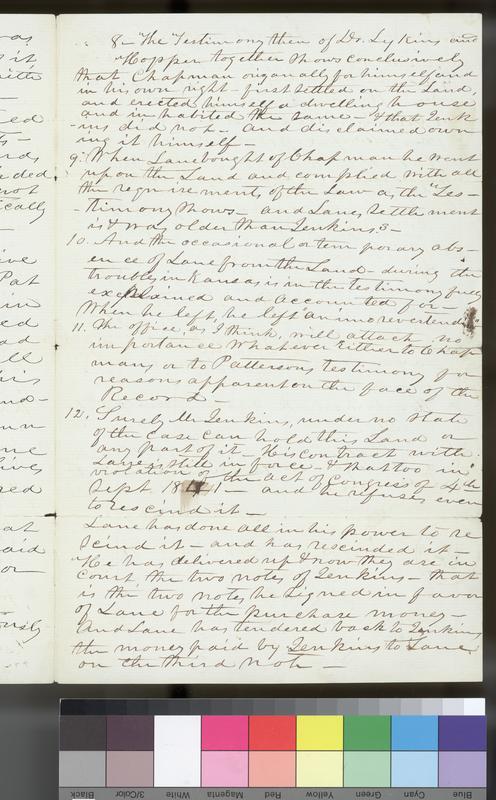 8– The Testimony then of Dr. Lykins and
Hopper together shows conclusively
that Chapman origanally for himself and
in his own right – first settled on the Land,
and erected himself a dwelling house
and inhabited the same – & that Jenk
-ins did not – and disclaimed own
ing it himself –
9. When Lane bought of Chapman he went
upon the Land and complied with all
the requirements of the Law as the Tes-
-timony shows – and Lanes settlement
is & was older than Jenkins's –
10. And the occasional or temporary abs-
ence of Lane from the Land – during the
troubles in Kansas is in the testimony fully
explained and accounted for –
When he left, he left "animo revertendi"
11. The office, as I think, will attach no
importance whatever either to Chap
mans or to Pattersons testimony for
reasons apparent on the face of the
Record –
12. Surely Mr Jenkins, under no state
of the case can hold this Land or
any part of it – His contract with
Lane is still in force – & that too in
violation of the act of Congress of 4th
Sept 1841 – and he refuses even
to rescind it –
Lane has done all in his power to re
scind it – and has rescinded it –
He has delivered up & now they are in
court the two notes of Jenkins – that
is the two notes he signed in favor
of Lane for the purchase money –
And Lane has tendered back to Jenkins
the money paid by Jenkins to Lane
on the third note –
Black
3/Color
White
Magenta
Red
Yellow
Green
Cyan
Blue